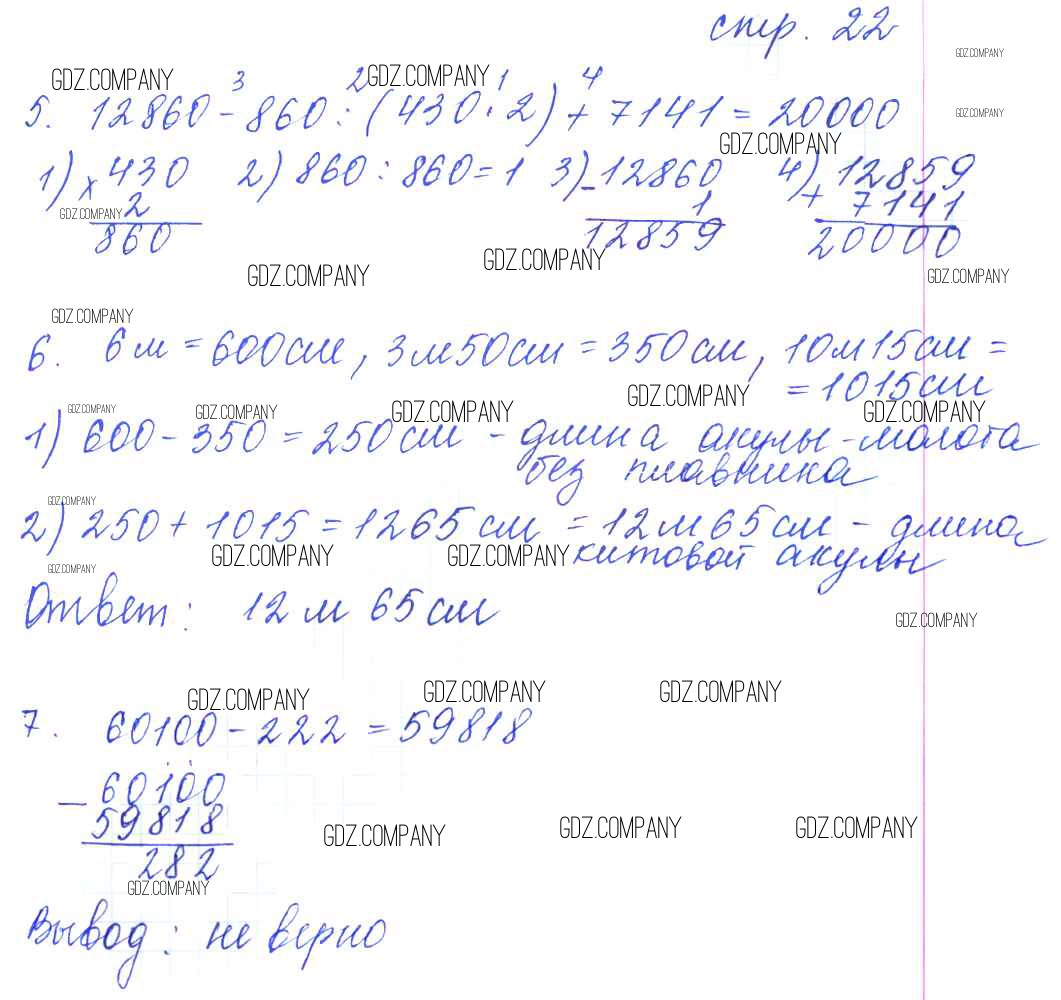 стр. 22
GDZ.COMPANY GDZ.COMPANY GDZ.COMPANY
3 2 1 4
5. 12860 - 860 : (430 · 2) + 7141 = 20000 GDZ.COMPANY
GDZ.COMPANY
1) × 430 2) 860 : 860 = 1 3) - 12860 4) + 12859
GDZ.COMPANY 2 1 7141
860 12859 20000
GDZ.COMPANY GDZ.COMPANY GDZ.COMPANY
GDZ.COMPANY
6. 6 м = 600 см, 3 м 50 см = 350 см, 10 м 15 см =
= 1015 см
GDZ.COMPANY
GDZ.COMPANY GDZ.COMPANY GDZ.COMPANY GDZ.COMPANY
1) 600 - 350 = 250 см - длина акулы-молота
без плавника
GDZ.COMPANY
2) 250 + 1015 = 1265 см = 12 м 65 см - длина
GDZ.COMPANY GDZ.COMPANY китовой акулы
GDZ.COMPANY
Ответ: 12 м 65 см
GDZ.COMPANY
GDZ.COMPANY GDZ.COMPANY GDZ.COMPANY
7. 60100 - 222 = 59818
- 60100
59818
GDZ.COMPANY GDZ.COMPANY GDZ.COMPANY
282
GDZ.COMPANY
Вывод: не верно